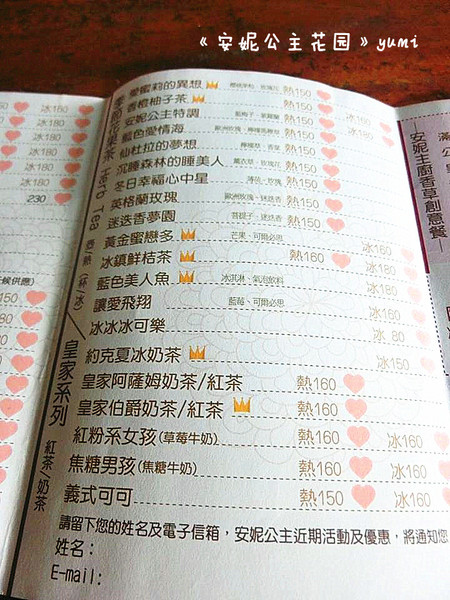 《安妮公主花园》yumi
季節花果茶 Herb Tea 香熱(杯/冰)
愛蜜莉的異想 熱150
香橙柚子茶 熱150 冰160
安妮公主特調 熱150 冰160
藍色愛情海 熱150
仙杜拉的夢想 熱150
沉睡森林的睡美人 薰衣草、玫瑰花 熱150
冬日幸福心中星 熱150
英格蘭玫瑰 熱150
迷迭香夢園 熱150
黃金蜜戀多 芒果、可爾必思 冰160
冰鎮鮮桔茶 熱160 冰160
藍色美人魚 冰淇淋、氣泡飲料 冰180
讓愛飛翔 藍莓、可爾必思 冰160
冰冰冰可樂 冰 80
皇家系列 紅茶/奶茶
約克夏冰奶茶 冰150
皇家阿薩姆奶茶/紅茶 熱160
皇家伯爵奶茶/紅茶 熱160
紅粉系女孩(草莓牛奶) 熱160 冰160
焦糖男孩(焦糖牛奶) 熱160 冰160
義式可可 熱150 冰160
請留下您的姓名及電子信箱，安妮公主近期活動及優惠，將通知您
姓名：
E-mail:
冰160
冰180
冰160
冰160
冰160
230
候供應)
150
安妮主廚香草創意餐